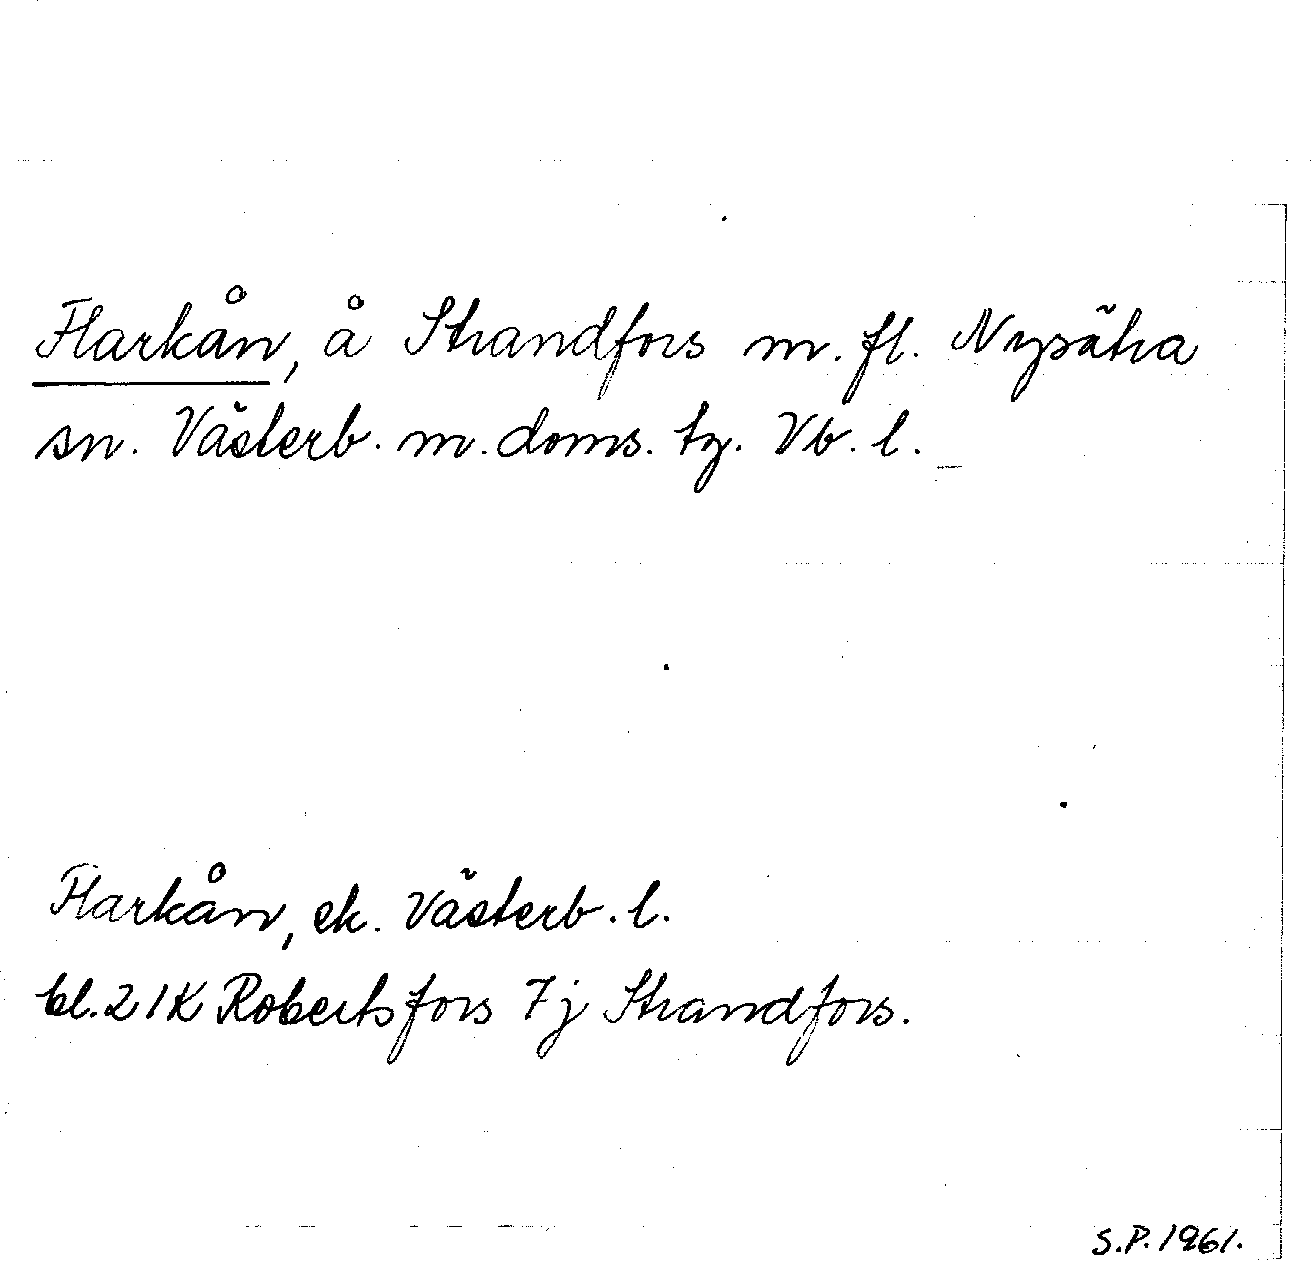 Flarkån, å Strandfors m. fl. Nysätra
sn. Västerb. m. doms. tg. Vb. l.
Flarkån, ek. Västerb. l.
bl. 21K Robertsfors 7j Strandfors.
S.P. 1961.